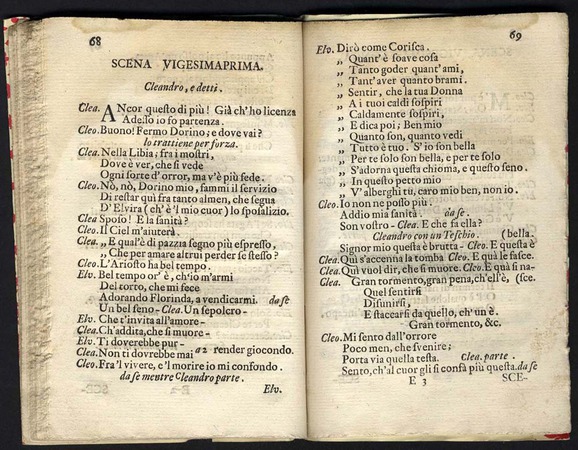 68
SCENA VIGESIMAPRIMA.
Cleandro, e detti.
Clea. ANcor questo di più! Già ch'ho licenza
Adesso io fo partenza.
Cleo. Buono! Fermo Dorino; e dove vai?
lo trattiene per forza.
Clea. Nella Libia; fra i mostri,
Dove è ver, che si vede
Ogni sorte d'orror, ma v'è più fede.
Cleo. Nò, nò, Dorino mio, fammi il servizio
Di restar quì fra tanto almen, che segua
D'Elvira (ch'è 'l mio cuor) lo sposalizio.
Clea Sposo! E la sanità?
Cleo. Il Ciel m'aiuterà.
Clea. „ E qual'è di pazzia segno più espresso,
„ Che per amare altrui perder se stesso?
Cleo. L'Ariosto ha bel tempo.
Elv. Bel tempo or' è, ch'io m'armi
Del torto, che mi fece
Adorando Florinda, a vendicarmi. da se
Un bel seno- Clea. Un sepolcro-
Elv. Che t'invita all'amore-
Clea. Ch'addita, che si muore-
Elv. Ti doverebbe pur-
Clea. Non ti dovrebbe mai a 2 render giocondo.
Cleo. Fra 'l vivere, e 'l morire io mi confondo.
da se mentre Cleandro parte.
Elv.
69
Elv. Dirò come Corisca.
„ Quant' è soave cosa
„ Tanto goder quant' ami,
„ Tant' aver quanto brami.
„ Sentir, che la tua Donna
„ A i tuoi caldi sospiri
„ Caldamente sospiri,
„ E dica poi; Ben mio
„ Quanto son, quanto vedi
„ Tutto è tuo. S'io son bella
„ Per te solo son bella, e per te solo
„ S'adorna questa chioma, e questo seno.
„ In questo petto mio
„ V' alberghi tu, caro mio ben, non io.
Cleo. Io non ne posso più.
Addio mia sanità. da se.
Son vostro- Clea. E che fa ella?
Cleandro con un Teschio. (bella.
Signor mio questa è brutta- Cleo. E questa è
Clea. Quì s'accenna la tomba Cleo. E quì le fasce.
Clea. Quì vuol dir, che si muore. Cleo. E quì si na-
Clea. Gran tormento, gran pena, ch'ell' è, (sce.
Quel sentirsi
Disunirsi,
E staccarsi da quello, ch'un' è.
Gran tormento, &c.
Cleo. Mi sento dall'orrore
Poco men, che svenire;
Porta via quella testa. Clea. parte.
Sento, ch'al cuor gli si confà più questa. da se
E 3 SCE-